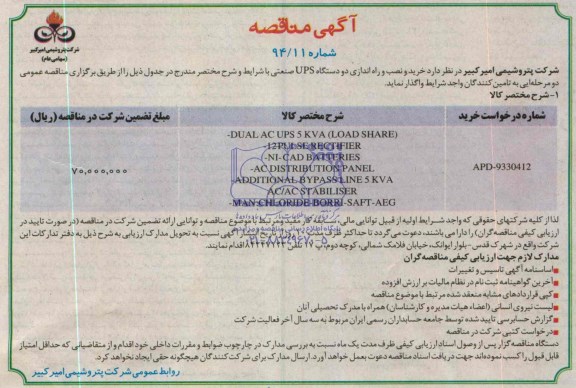 آگهی مناقصه
شماره ۹۴/۱۱
شرکت پتروشیمی امیرکبیر
(سهامی عام)
شرکت پتروشیمی امیرکبیر در نظر دارد خرید و نصب و راه اندازی دو دستگاه UPS صنعتی با شرایط و شرح مختصر مندرج در جدول ذیل را از طریق برگزاری مناقصه عمومی
دو مرحله‌ایی به تامین کنندگان واجد شرایط واگذار نماید.
۱-شرح مختصر کالا
شماره درخواست خرید شرح مختصر کالا مبلغ تضمین شرکت در مناقصه (ریال)
-DUAL AC UPS 5 KVA (LOAD SHARE)
-12PULSE RECTIFIER
-NI-CAD BATTERIES
APD-9330412 -AC DISTRIBUTION PANEL ۷۰,۰۰۰,۰۰۰
-ADDITIONAL BYPASS LINE 5 KVA
AC/AC STABILISER
-MAN CHLORIDE-BORRI-SAFT-AEG
لذا از کلیه شرکتهای حقوقی که واجد شرایط اولیه از قبیل توانایی مالی، سابقه کار مفید و مرتبط با موضوع مناقصه و توانایی ارائه تضمین شرکت در مناقصه (در صورت تایید در
ارزیابی کیفی مناقصه گران) را دارا می باشند، دعوت می گردد تا حداکثر ظرف مدت روز از تاریخ انتشار آگهی نسبت به تحویل مدارک ارزیابی به شرح ذیل به دفتر تدارکات این
شرکت واقع در شهرک قدس -بلوار ایوانک، خیابان فلامک شمالی، کوچه دوم، پ تلفن اقدام نمایند.
مدارک لازم جهت ارزیابی کیفی مناقصه گران
اساسنامه آگهی تاسیس و تغییرات
آخرین گواهینامه ثبت نام در نظام مالیات بر ارزش افزوده
کپی قراردادهای مشابه منعقد شده مرتبط با موضوع مناقصه
لیست نیروی انسانی (اعضاء هیات مدیره و کارشناسان) همراه با مدرک تحصیلی آنان
گزارش حسابرسی تایید شده توسط جامعه حسابداران رسمی ایران مربوط به سه سال آخر فعالیت شرکت
درخواست کتبی شرکت در مناقصه
دستگاه مناقصه گزار پس از وصول اسناد ارزیابی کیفی ظرف مدت یک ماه نسبت به بررسی مدارک در چارچوب ضوابط و مقررات داخلی خود اقدام و از متقاضیانی که حداقل امتیاز
قابل قبول را کسب نموده‌اند جهت دریافت اسناد مناقصه دعوت بعمل خواهد آورد. ارسال مدارک برای شرکت کنندگان هیچگونه حقی ایجاد نخواهد کرد.
روابط عمومی شرکت پتروشیمی امیرکبیر